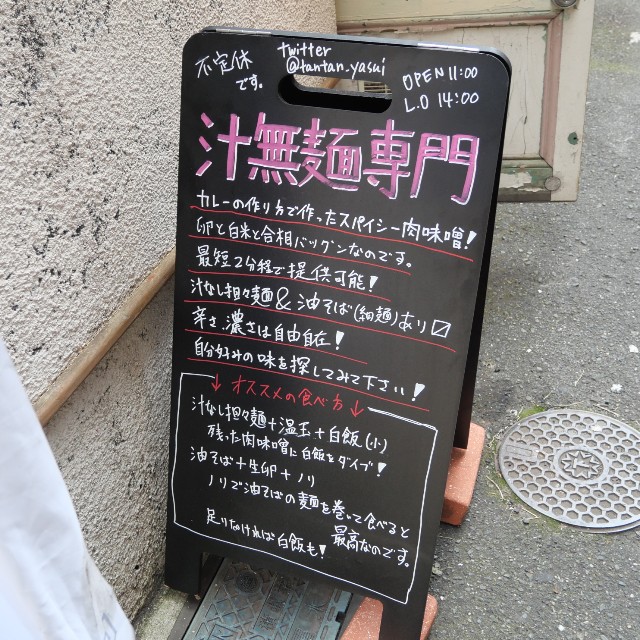 不定休
です。
twitter
@tantan.yasui
OPEN 11:00
L.O 14:00
汁無麺専門
カレーの作り方で作ったスパイシー肉味噌!
卵と白米と合相バツグンなのです。
最短2分程で提供可能!
汁なし担々麺&油そば(細麺)あり〼
辛さ、濃さは自由自在!
自分好みの味を探してみて下さい!
↓オススメの食べ方↓
汁なし担々麺+温玉+白飯(小)
残った肉味噌に白飯をダイブ!
油そば+生卵+ノリ
ノリで油そばの麺を巻いて食べると
最高なのです。
足りなければ白飯も!